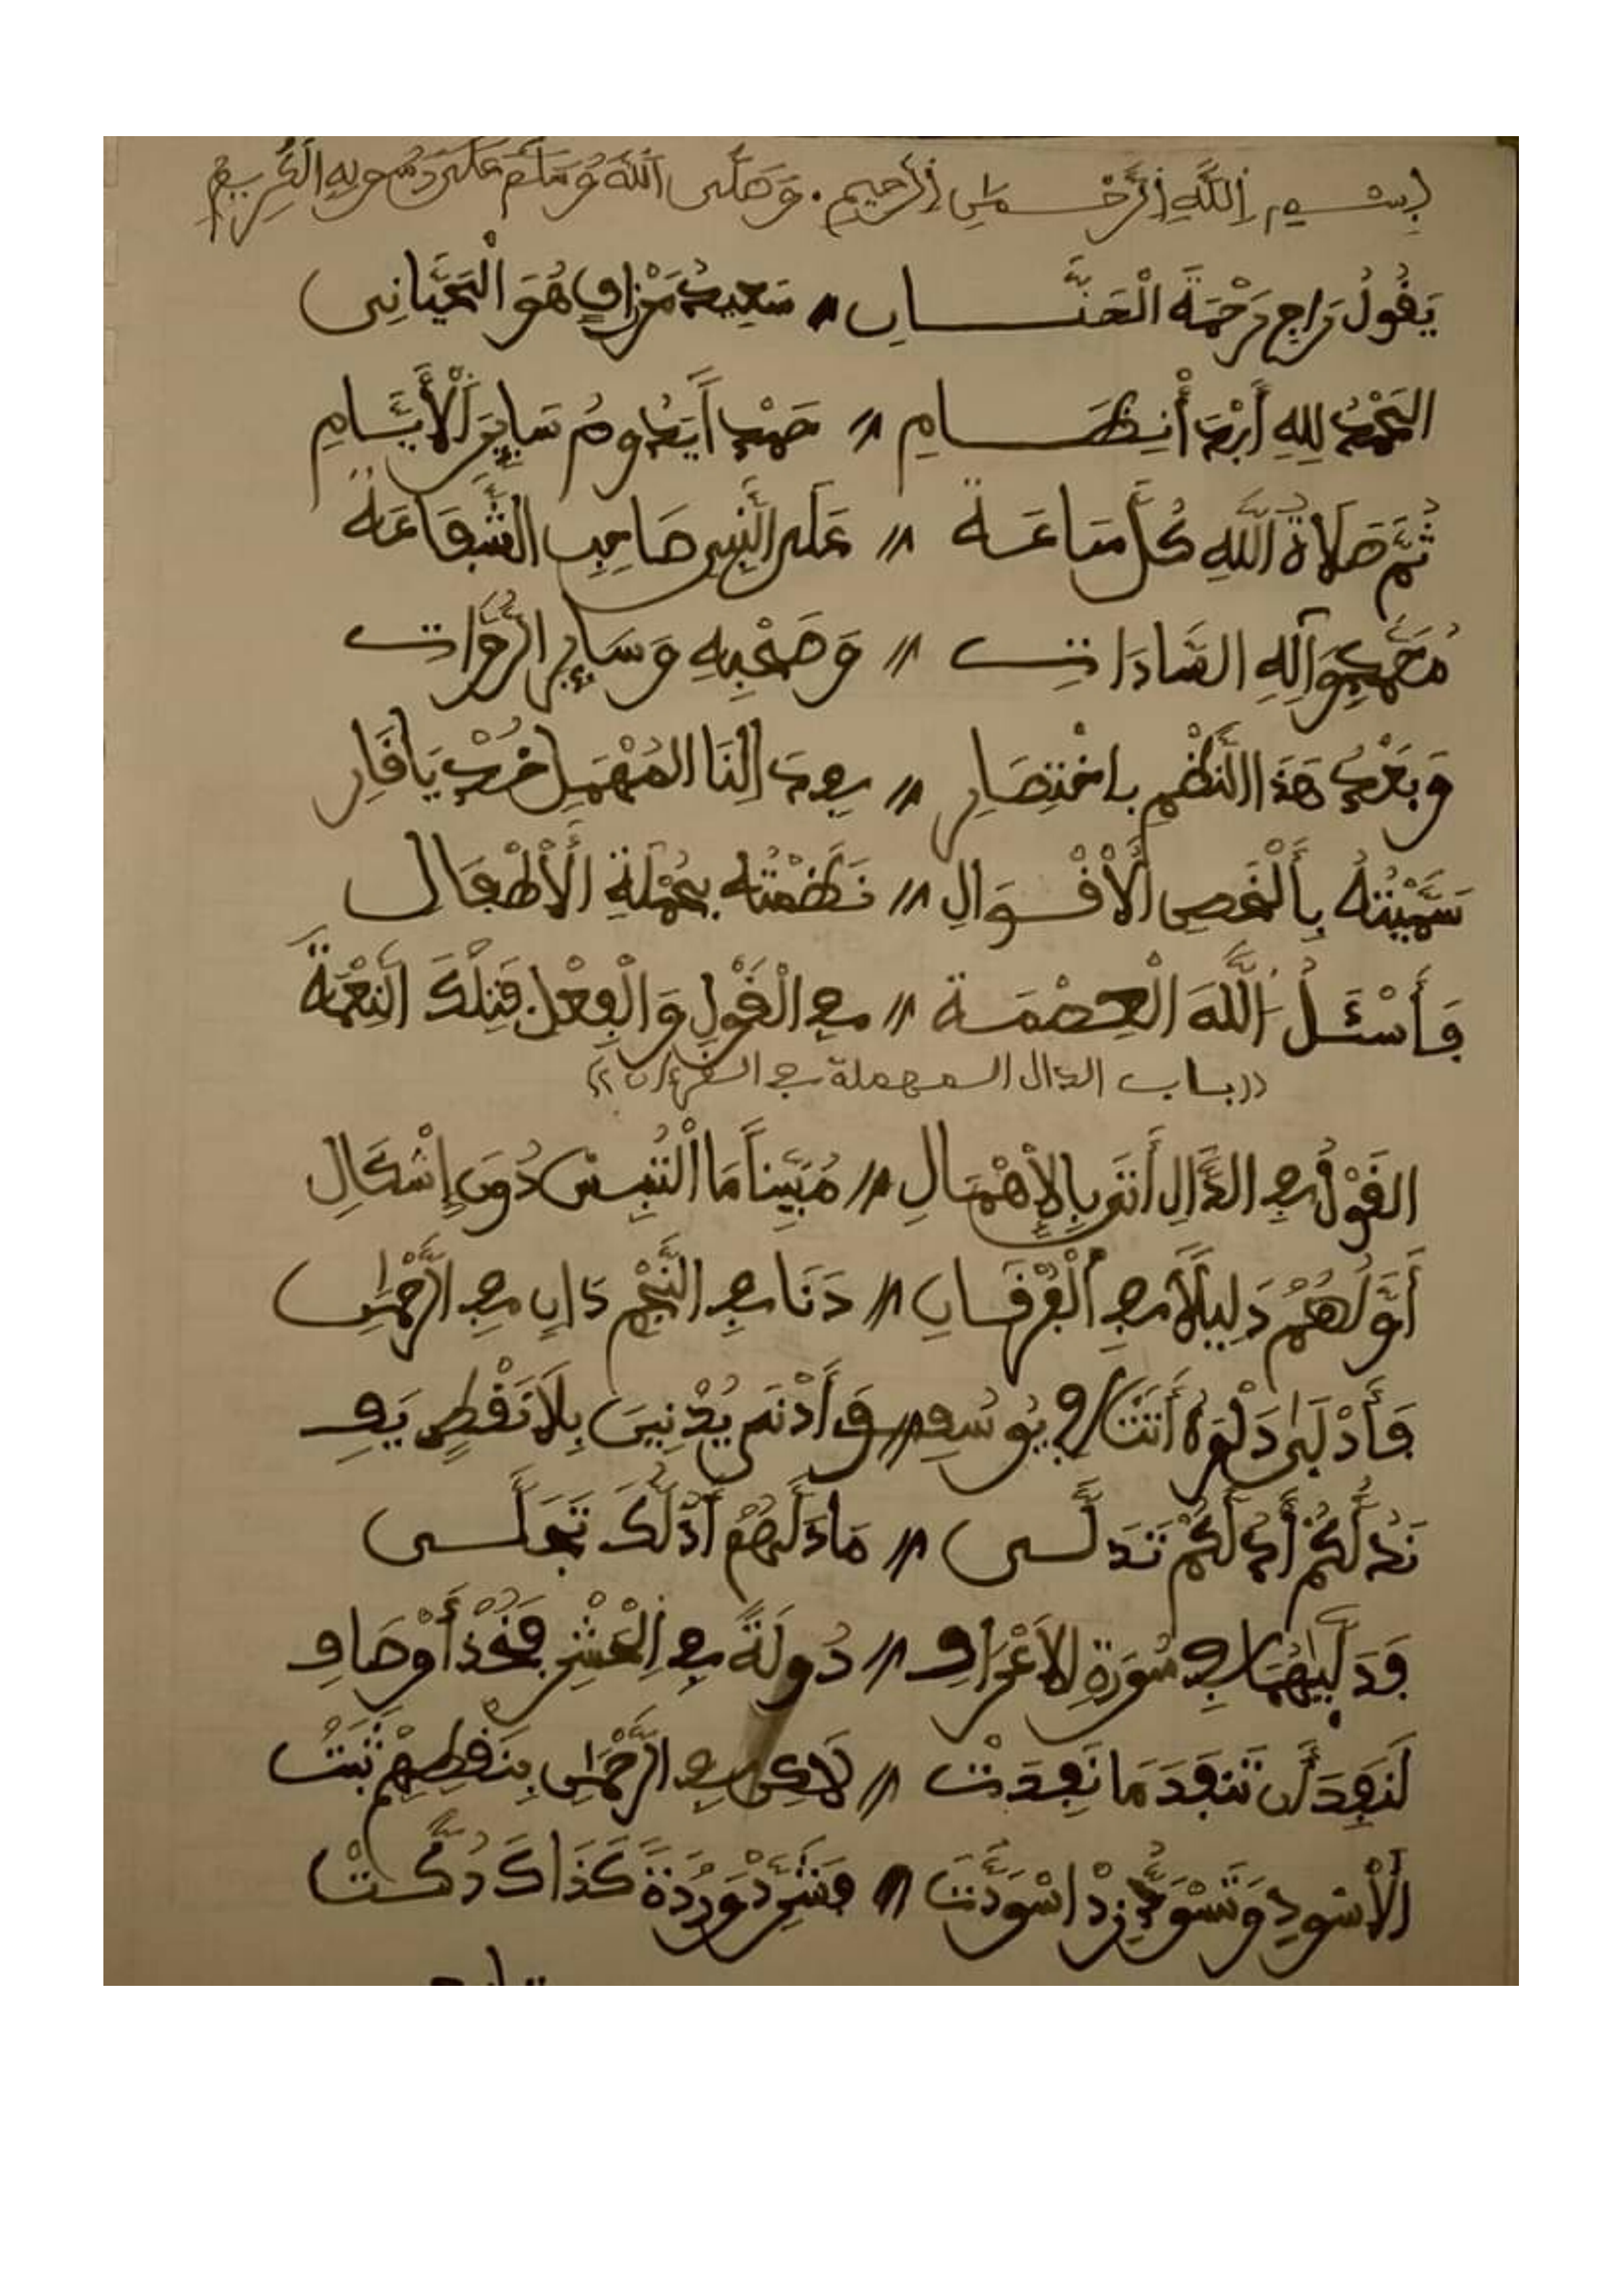 بِسْمِ اِللَّهِ اِلرَّحْمَٰنِ اِلرَّحِيمِ . وَصَلَّى اَللَّهُ وَسَلَّمَ عَلَى رَسُولِهِ الْكَرِيمِ
يَقُولُ رَاجِ رَحْمَةَ الْحَنَّـــانِ // سَعِيدُ هُوَ
الْحَمْدُ لِلهِ أَبْدَأُ نِظَـــامِ // حَمْداً يَدُومُ سَايِرَ اَلْأَيَّـامِ
ثُمَّ صَلَاةُ اَللَّهِ كُلَّ سَاعَـةْ // عَلَى النَّبِيِ صَاحِبِ الشَّفَاعَةْ
مُحَمَّدٍ وَآلِهِ السَّادَاتِ // وَصَحْبِهِ وَسَايِرِ الرُّوَاتِ
وَبَعْدُ هَذَا النَّظْمِ بِاخْتِصَارِ // فِي دَالِنَا الْمُهْمَلِ خُذْ يَا قَارِ
سَمَّيْتُهُ الْأَقْـوَالِ // نَظَمْتُهُ بِجُمْلَةِ اَلْأَطْفَالْ
فَأَسْئَـلُ اَللَّهَ الْعِصْمَـةْ // فِي الْقَوْلِ وَالْفِعْلِ فَتِلْكَ النِّعْمَةْ
((باب الدال المهملة في القرءان))
الْقَوْلُ فِي الدَّالِ أَتَى بِالْإِهْمَالِ // مُبَيِّناً مَا الْتَبِسْ دُونَ إِشْكَالِ
أَوَّلُهُمْ دَلِيلًا فِي اَلْفُرْقَـانِ // دَنَا فِي النَّجْمِ دَانٍ فِي الرَّحْمَٰنِ
فَأَدْلَىٰ دَلْوَهُ أَتَتْ فِي يُوسُفِ // وَأَدْنَى يُدْنِينَ بِلَا نَقْطٍ يَفِ
نَدُلُّكُمْ أَدُلُّكُمْ تَدَلَّـى // مَا دَلَّهُمْ أَدُلُّكَ تَجَلَّـى
فَدَلَّيٰهُمَا فِي سُورَةِ الْأَعْرَافِ // دُولَةً فِي اِلْحَشْرِ فَخُذْ أَوْصَافِ
لَنَفِدَ أَن تَنفَدَ مَا نَفِدَتْ // لَاكِن فِي الرَّحْمَٰنِ بِنَقْطِهِمْ ثَبَتْ
الْأَسْوَدِ وَتَسْوَدُّ زِدْ اسْوَدَّتْ // فَشَرِّدْ وَرْدَةً كَذَاكَ دُكَّـتْ